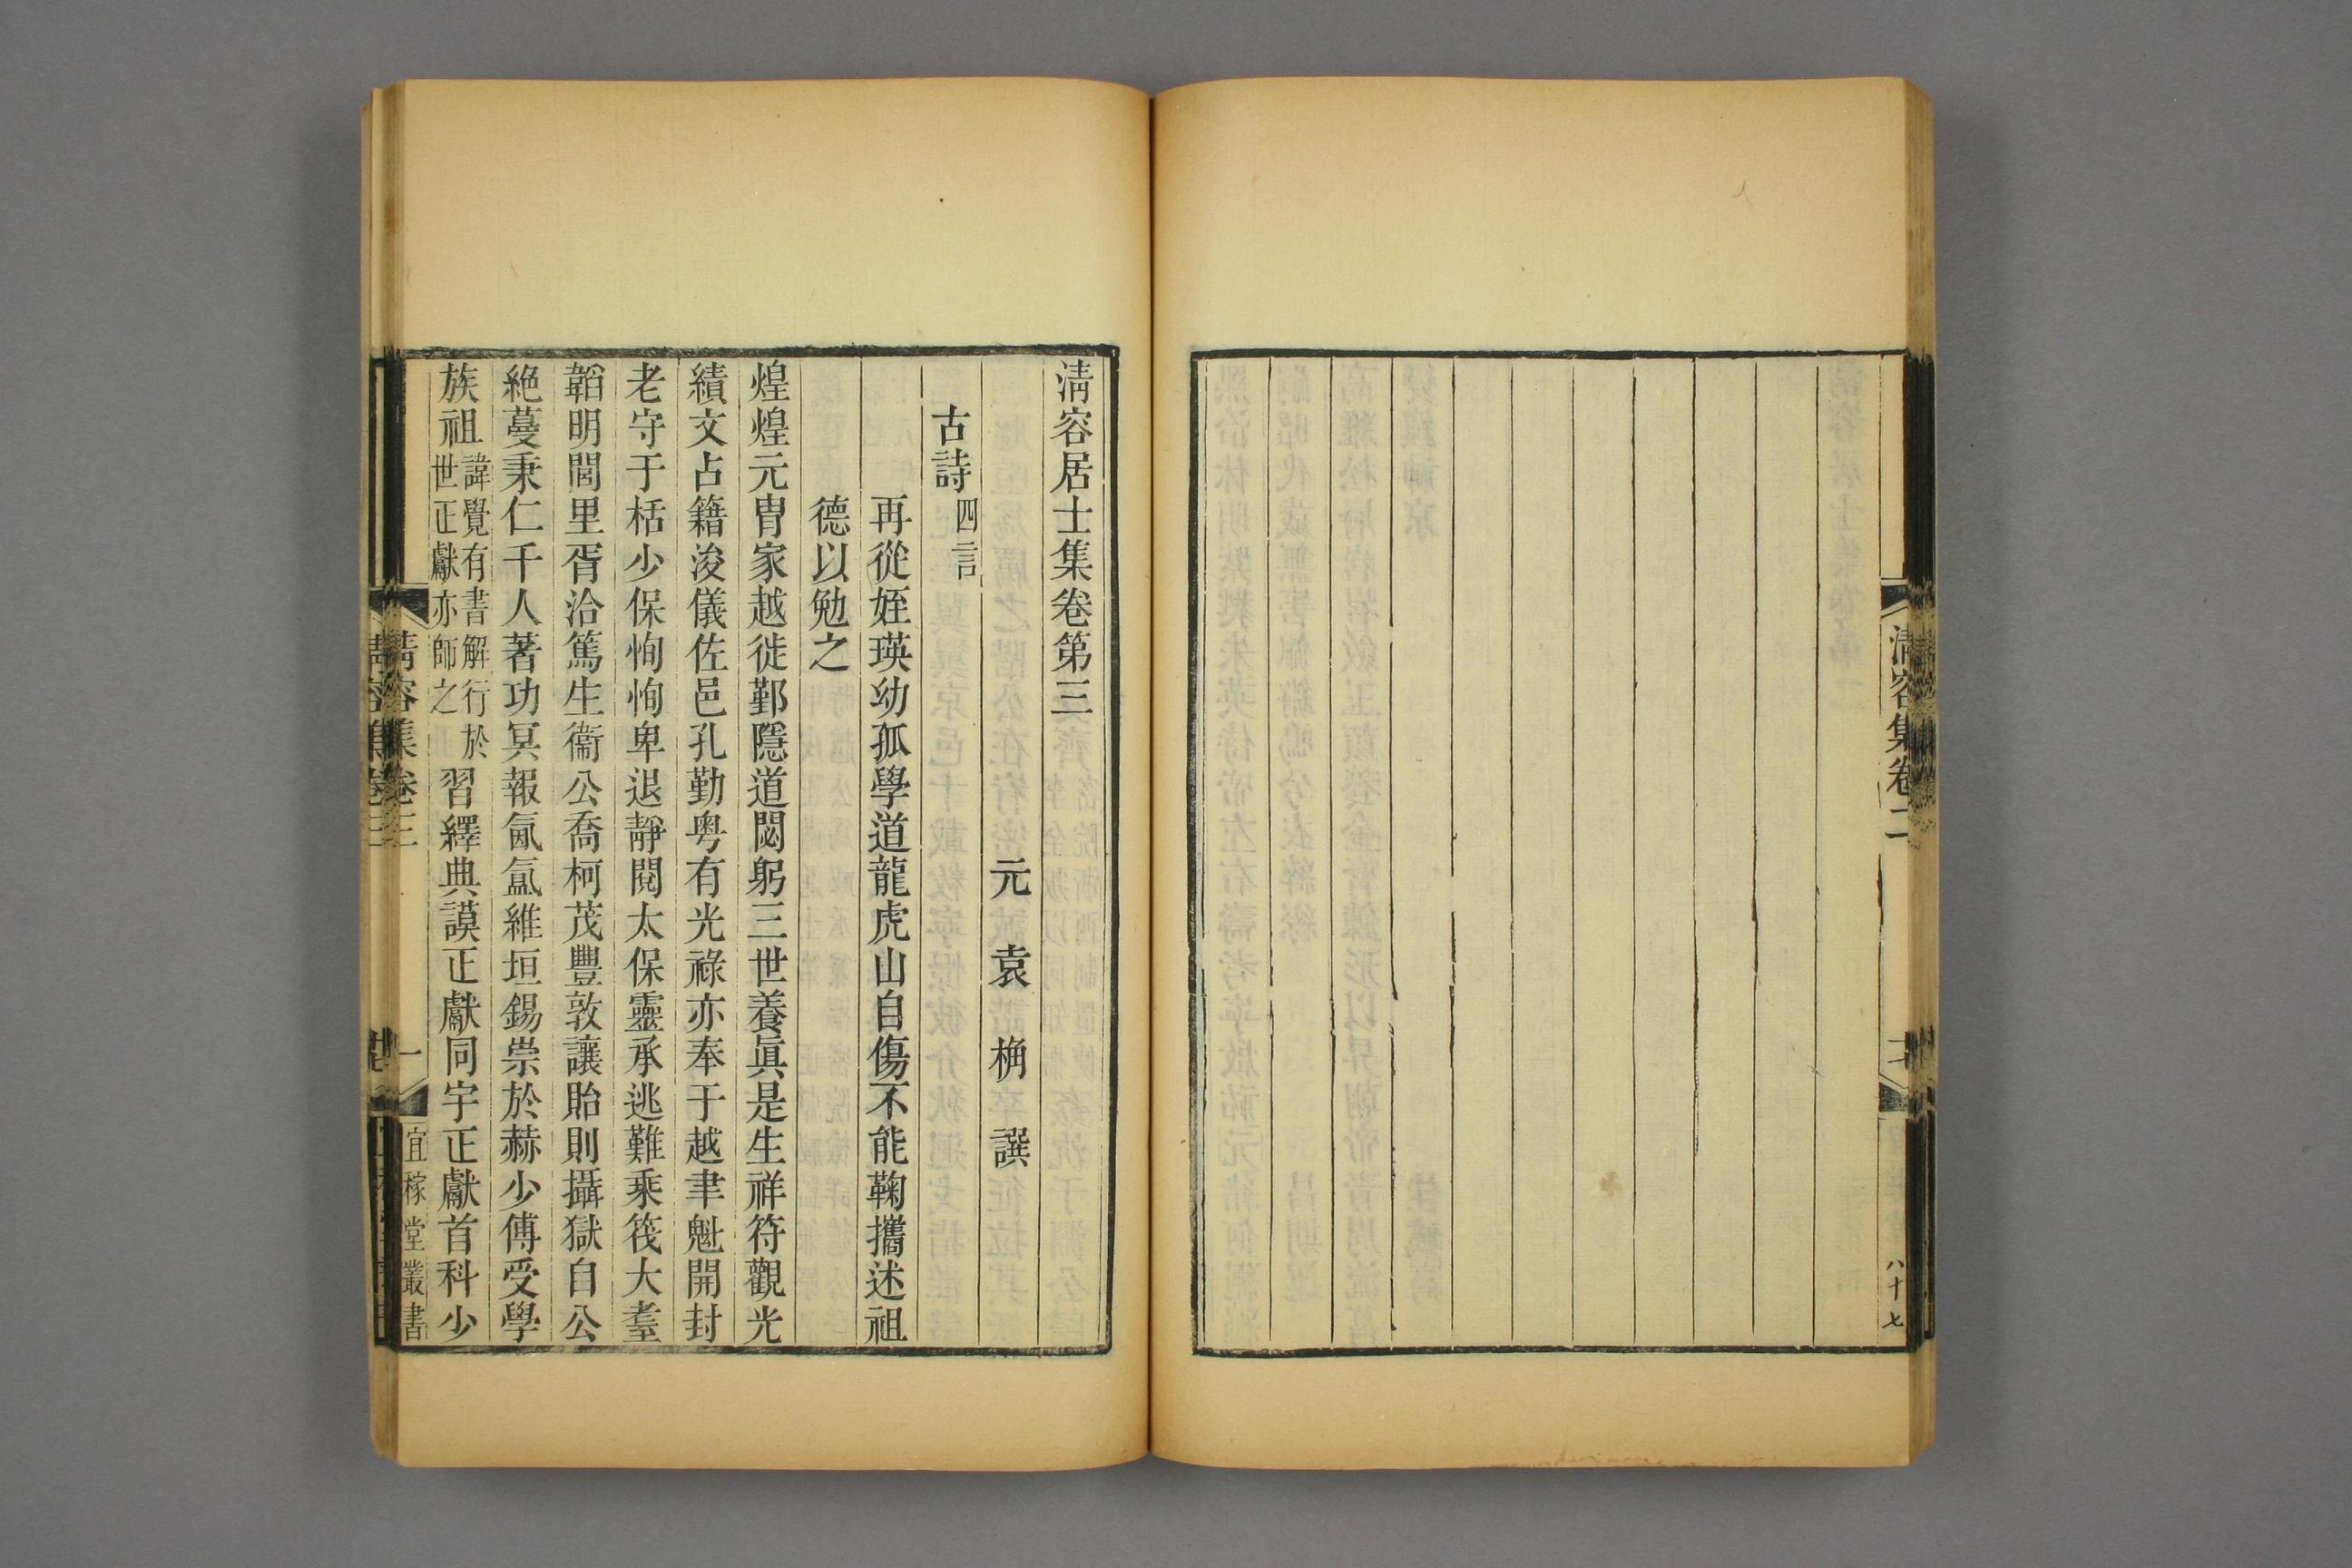 清容居士集卷第三
元 袁 桷 譔
古詩四言
再從姪瑛幼孤學道龍虎山自傷不能鞠攜述祖
德以勉之
煌煌元胄家越徙鄞隱道閟躬三世養眞是生祥符觀光
績文占籍浚儀佐邑孔勤粤有光祿亦奉于越聿魁開封
老守于栝少保恂恂卑退靜閱太保靈承逃難乘筏大耋
韜明閭里胥洽篤生衞公喬柯茂豐敦讓貽則攝獄自公
絶蔓秉仁千人著功冥報氤氲維垣錫祟於赫少傅受學
族祖諱覺有書解行於世正獻亦師之習繹典謨正獻同宇正獻首科少
清容集卷三
一
宜稼堂叢書
清容集卷二
八十七